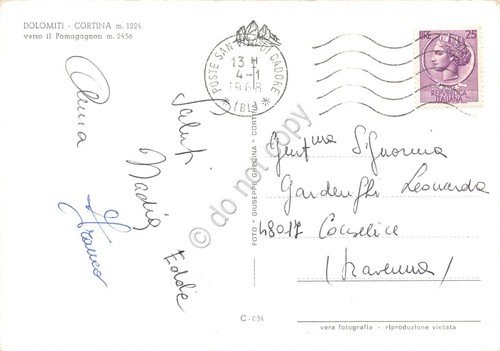 DOLOMITI - CORTINA m. 1224
verso il Pomagagnon m. 2456
Saluti
Anna
Nadia
Franco
Edda
FOTO * GIUSEPPE GHEDINA * CORTINA
C-034
POSTE SAN VITO DI CADORE
13 H
4-1
1968
(BL)
LIRE 25
REPUBBLICA
ITALIANA
Gent.ma Signorina
Gardenghi Leonarda
48017 Conselice
(Ravenna)
vera fotografia - riproduzione vietata
© do not copy